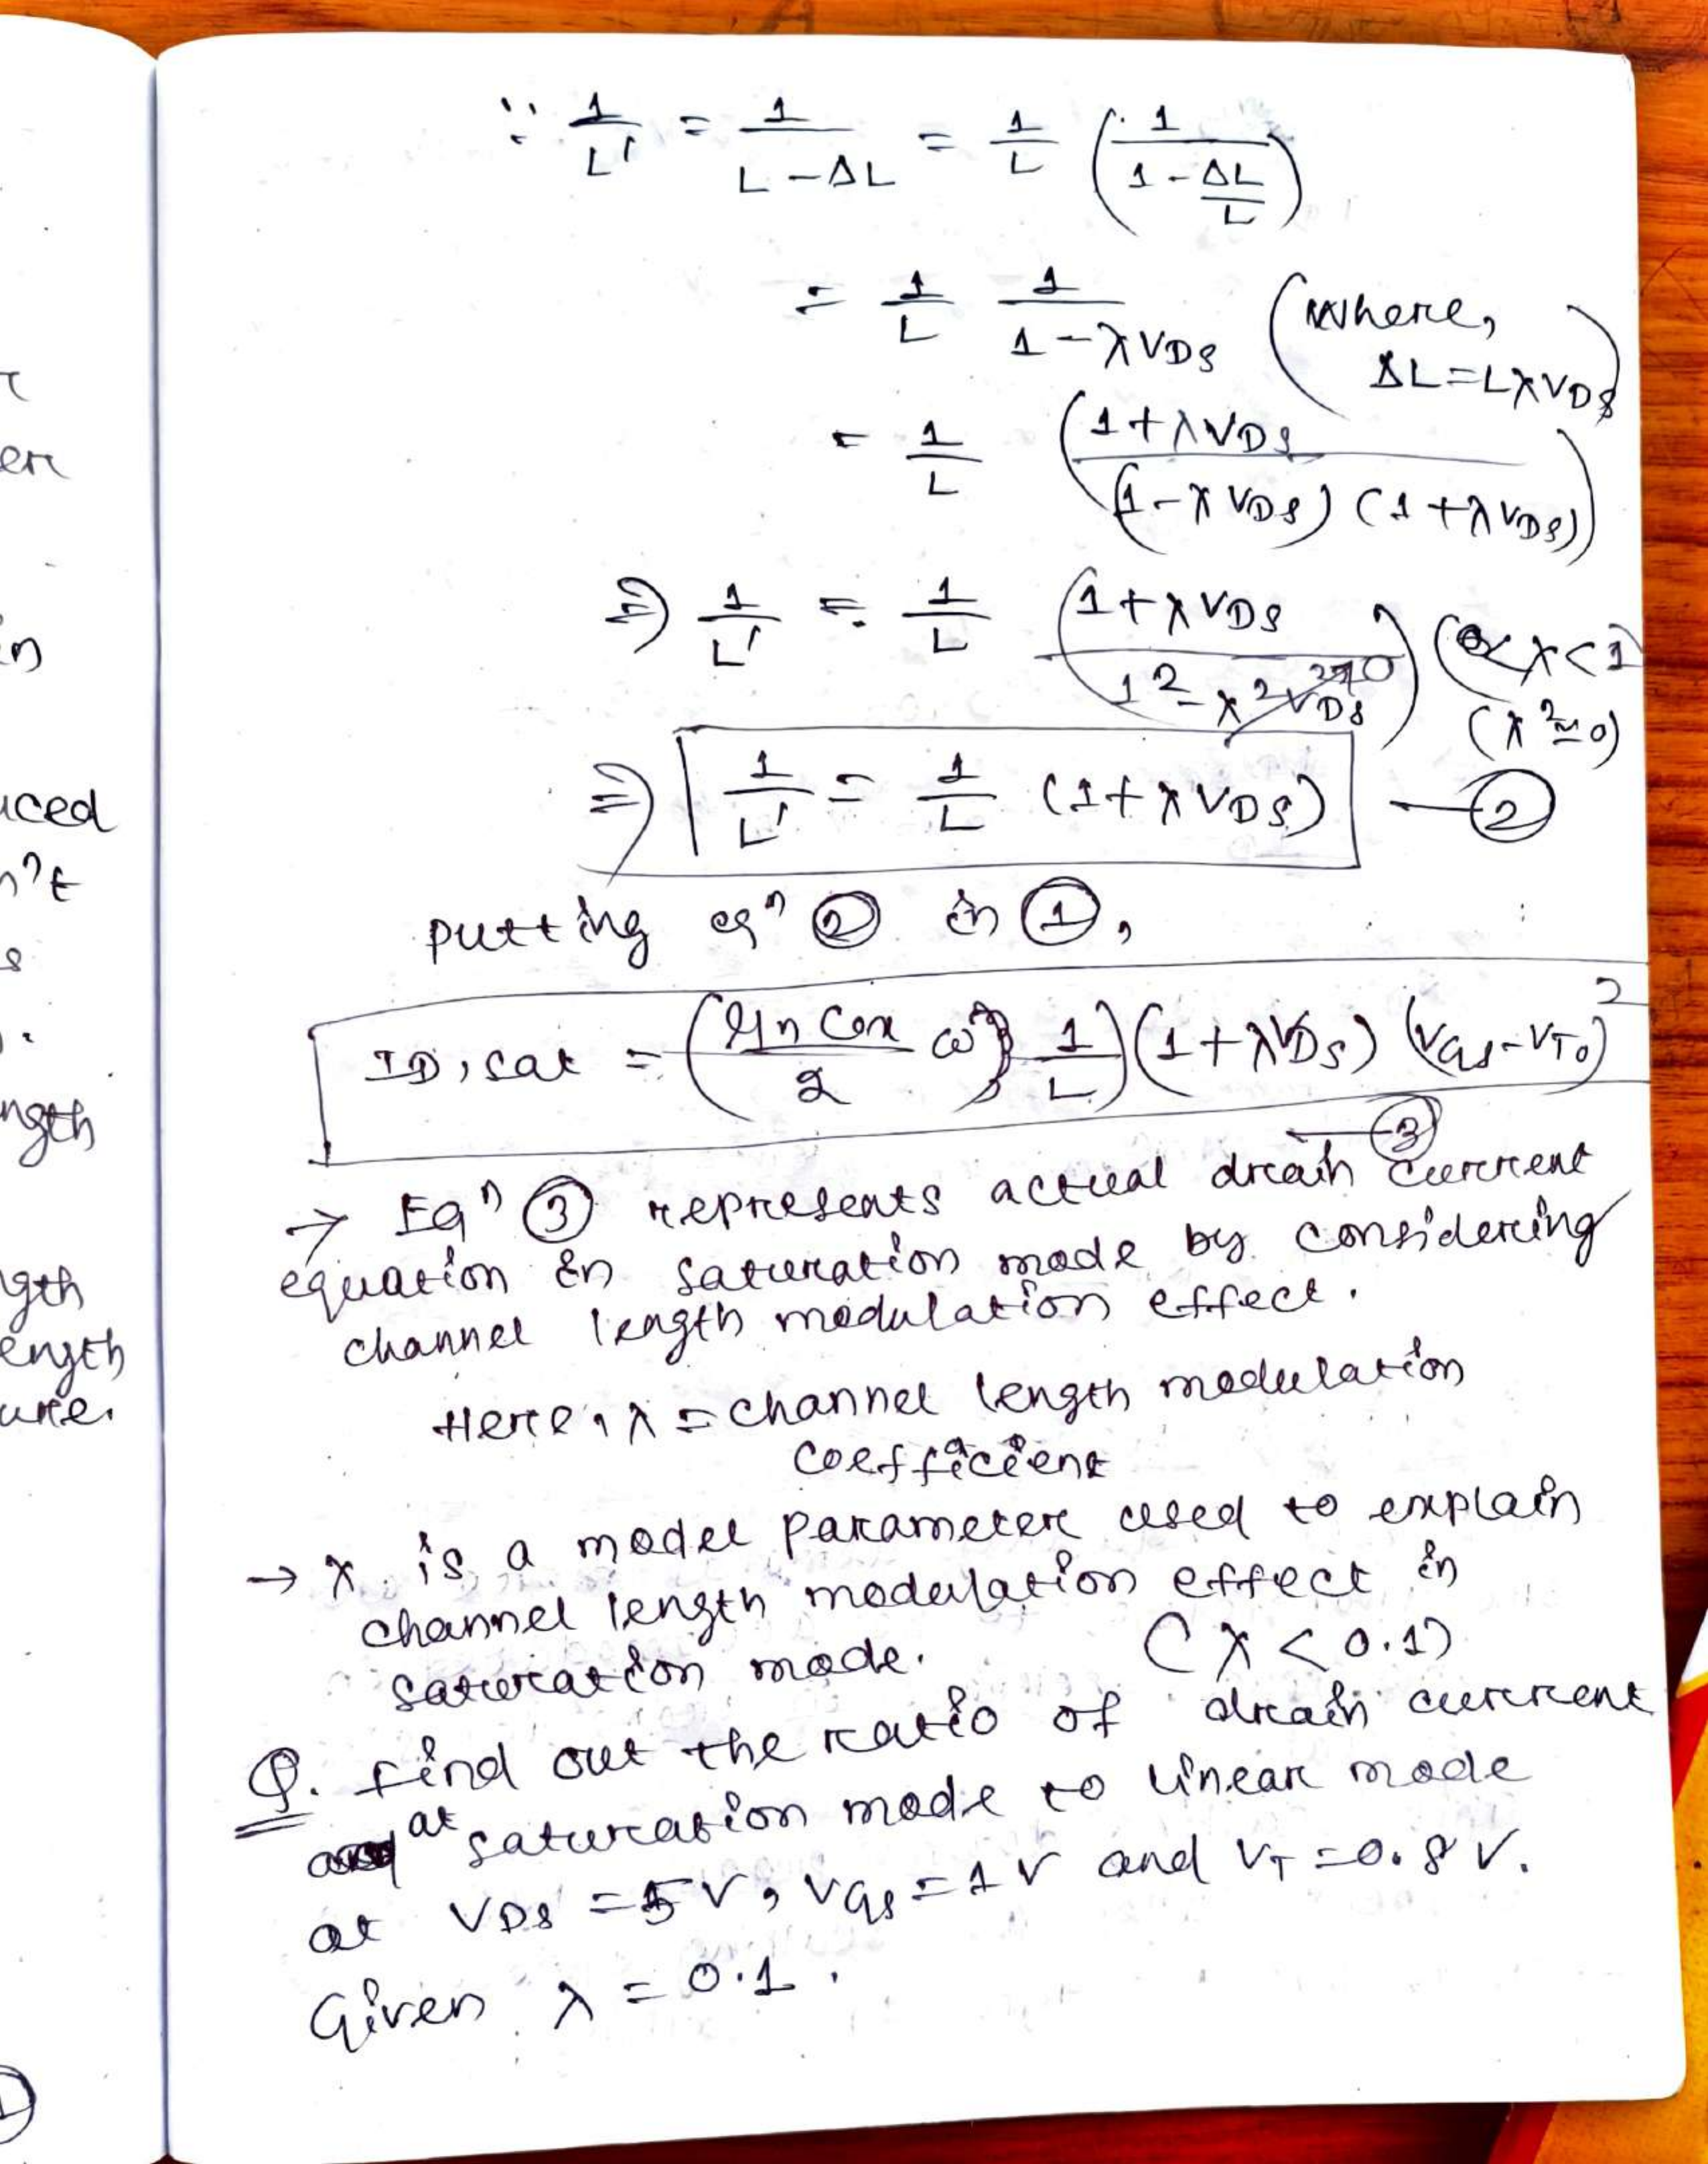 r
en
in
uced
n't
s
ngth
gth
ength
ure.
∵ 1/L' = 1/(L - ΔL) = 1/L (1/(1 - ΔL/L))
= 1/L 1/(1 - λVDS) (Where, ΔL = LλVDS)
= 1/L ((1 + λVDS)/((1 - λVDS)(1 + λVDS)))
⇒ 1/L' = 1/L ((1 + λVDS)/(1² - λ²VDS²→0)) (0<λ<1)
(λ²≃0)
⇒ 1/L' = 1/L (1 + λVDS) — 2
putting eqn 2 in 1,
ID,sat = (μn Cox/2 ω 1/L)(1 + λVDS)(VGS - VT0)²
— 3
→ Eqn 3 represents actual drain current
equation in saturation mode by considering
channel length modulation effect.
Here, λ = channel length modulation
coefficient
→ λ is a model parameter used to explain
channel length modulation effect in
saturation mode. (λ < 0.1)
Q. Find out the ratio of drain current
at saturation mode to linear mode
at VDS = 5V, VGS = 1V and VT = 0.8V.
Given λ = 0.1.